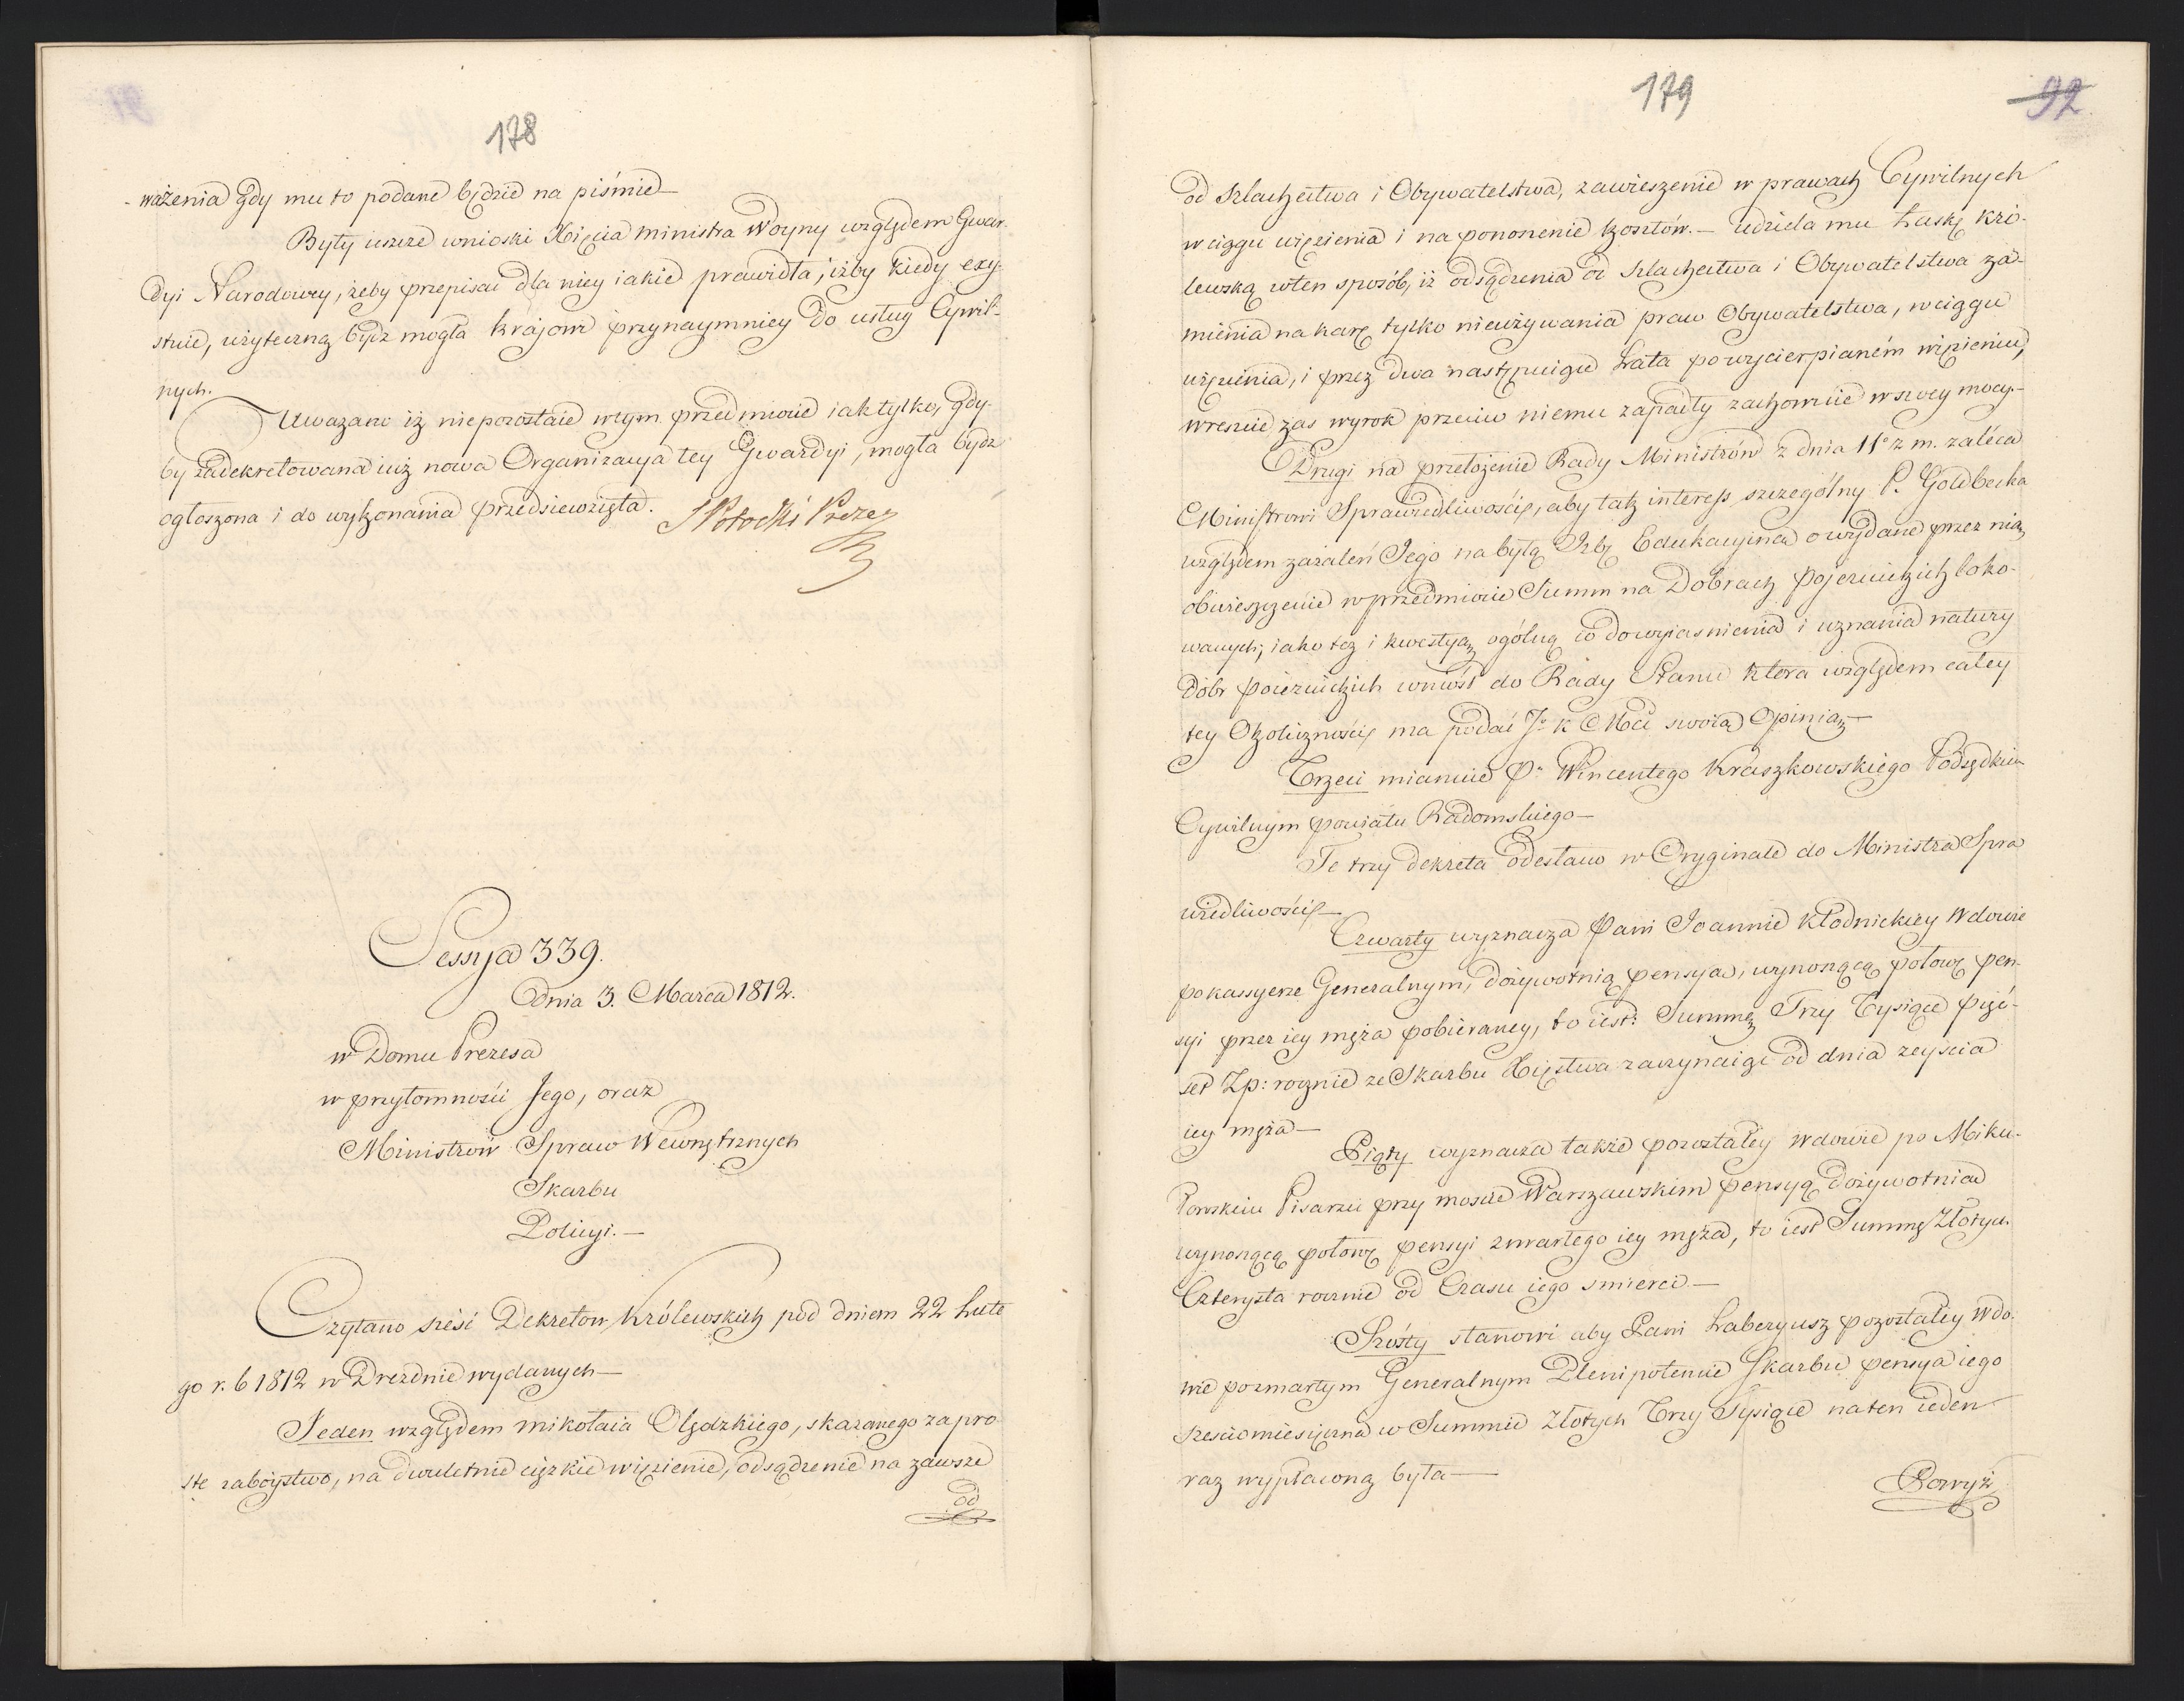 178
-ważenia gdy mu to podane będzie na piśmie—
Były ieszcze wnioski Xięcia ministra Woyny względem Gwar-
dyi Narodowey, żeby przepisać dla niey iakie prawidła, iżby kiedy exy-
stuie, użyteczną bydz mogła krajowi przynaymniey do usług Cywil-
nych.
Uwazano iż niepozostaie wtym przedmiocie iak tylko, gdy-
by zadekretowana iuż nowa Organizacya tey Gwardyi, mogła bydz
ogłoszona i do wykonania przedsiewzięta. S Potocki Prezes
Sessya 339.
dnia 3. Marca 1812.
w Domu Prezesa
w przytomności Jego, oraz
Ministrów Spraw Wewnętrznych
Skarbu
Policyi.—
Czytano sześć Dekretow Królewskich pod dniem 22 Lute
go r. b 1812 w Dreznie wydanych—
Jeden względem mikołaia Olędzkiego, skazanego za pro
ste zaboystwo, na dwuletnie ciężkie więzienie, odsądzenie na zawsze
od
179
92
od Szlachectwa i Obywatelstwa, zawieszenie w prawach Cywilnych
w ciągu więzienia i na ponoszenie kosztów.— Udziela mu Łaskę Kró-
lewską wten sposób, iż odsądzenia od Szlachectwa i Obywatelstwa za-
mienia na karę tylko nieużywania praw Obywatelstwa, w ciągu
więzienia, i przez dwa następuiące Lata po wycierpianém więzieniu,
wreszcie zas wyrok przeciw niemu zapadły zachowuie w swey mocy—
Drugi na przełożenie Rady Ministrów z dnia 11o z m. zaléca
Ministrowi Sprawiedliwości, aby tak interess szczególny P. Goldbecka
względem zażaleń Jego na byłą Izbę Edukacyina o wydane przez nią
obwieszczenie w przedmiocie Summ na Dobrach Pojezuickich loko-
wanych; iako też i kwestyą ogólną co do wyiasnienia i uznania natury
Dóbr poiezuickich wniósł do Rady Stanu która względem całey
tey Okoliczności ma podać Jo K Mci swoią Opinią—
Trzeci mianuie Po Wincentego Kraszkowskiego Podsędkiem
Cywilnym powiatu Radomskiego—
Te trzy dekreta odesłano w Oryginale do Ministra Spra
wiedliwości—
Czwarty wyznacza Pani Joannie Kłodnickiey Wdowie
po kassyerze Generalnym, dożywotnią pensya, wynoszącą połowę pen-
syi przez iey męża pobieraney, to iest: Summę Trzy Tysiące pięć-
set Zp: rocznie ze Skarbu Xięstwa zaczynaiąc od dnia zeyścia
iey męża—
Piąty wyznacza także pozostałey wdowie po Miku-
łowskim Pisarzu przy moście Warszawskim pensyą dożywotnia
wynoszącą połowę pensyi zmarłego iey męża, to iest Summę Złotych
Czterysta rocznie od Czasu iego smierci—
Szósty stanowi aby Pani Laberyusz pozostałey Wdo-
wie po zmarłym Generalnym Plenipotencie Skarbu pensya iego
sześciomiesięczna w Summie Złotych Trzy Tysiące na ten ieden
raz wypłaconą była—
Powyż